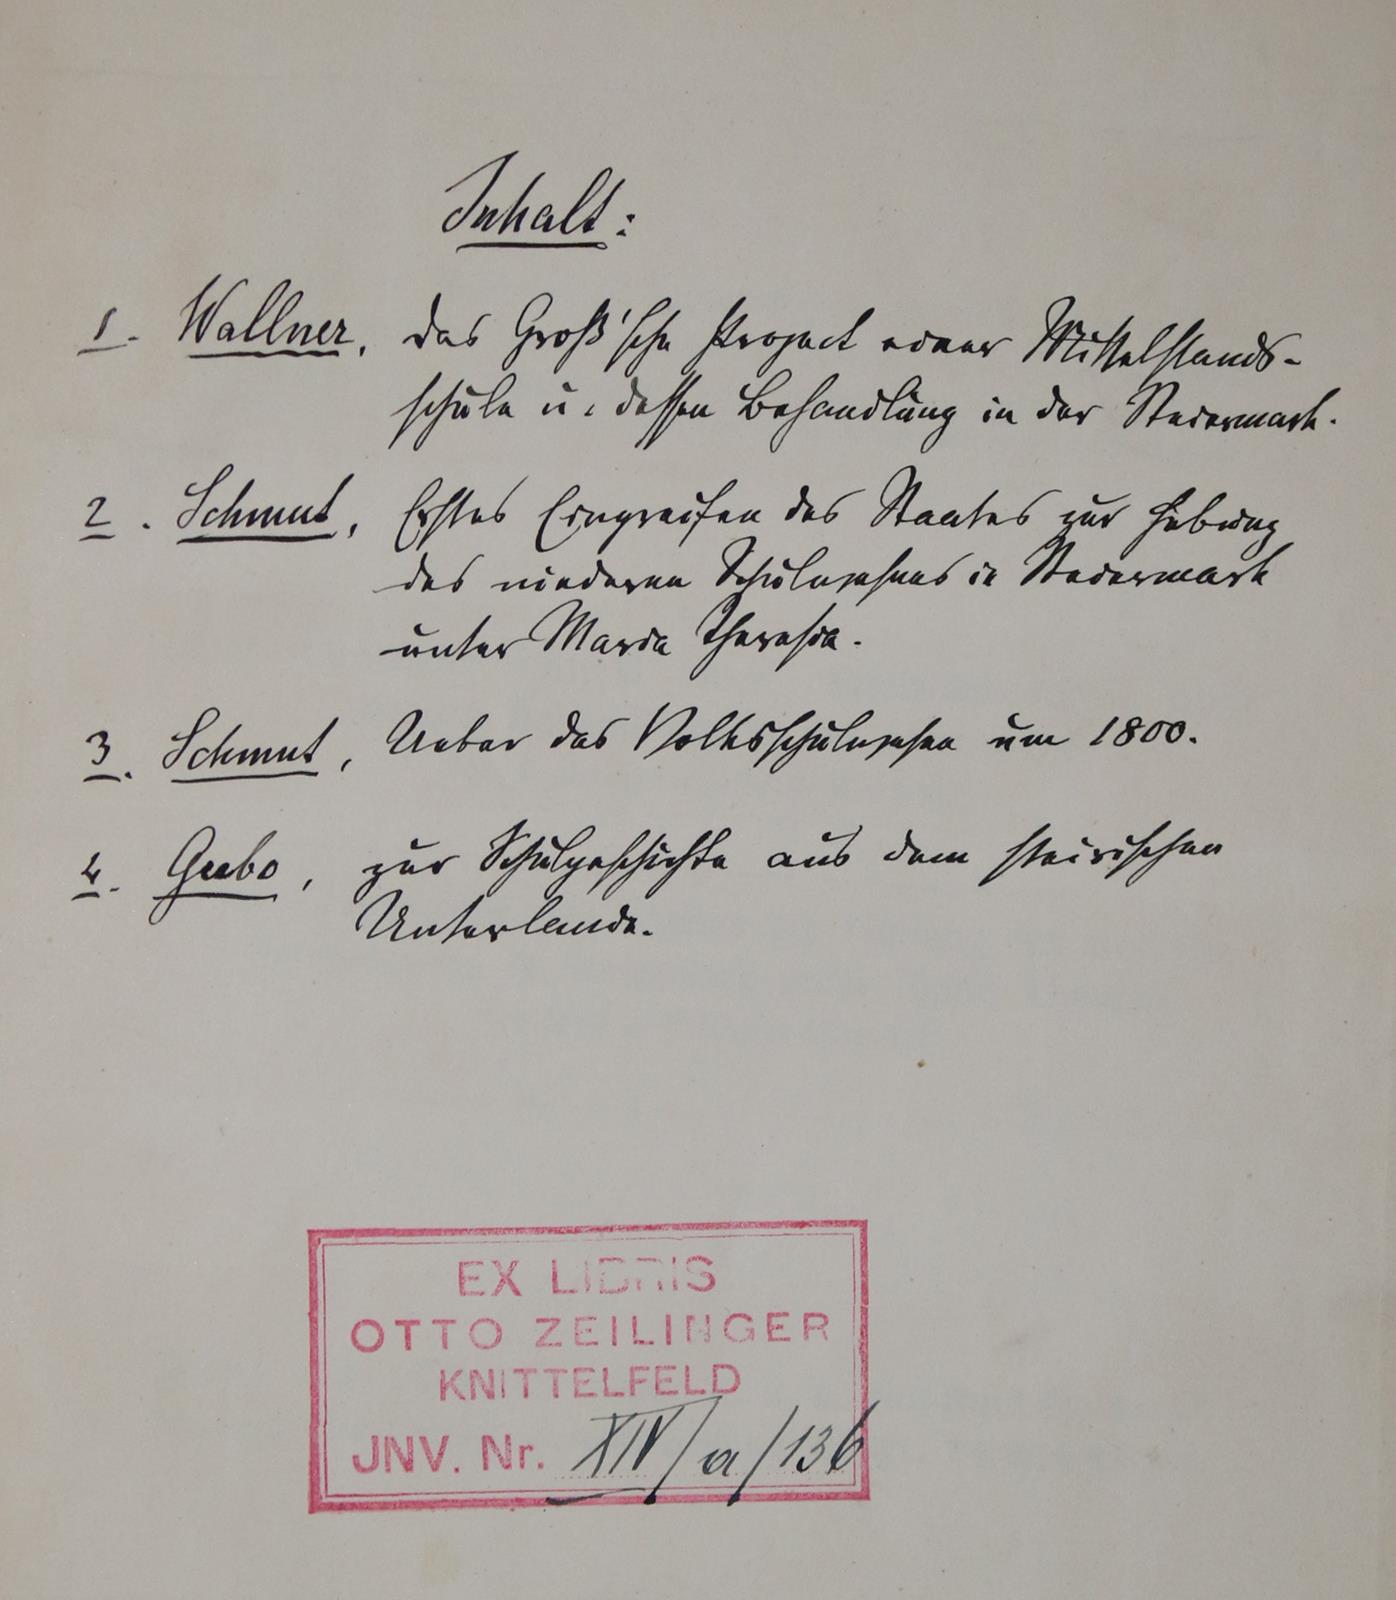 Inhalt:
1. Wallner, Das Groß'sche Project einer Mittelstands-
schule u. dessen Behandlung in der Steiermark.
2. Schmut, Erstes Eingreifen des Staates zur Hebung
des niederen Schulwesens in Steiermark
unter Maria Theresia.
3. Schmut, Ueber das Volksschulwesen um 1800.
4. Gubo, zur Schulgeschichte aus dem steirischen
Unterlande.
EX LIBRIS
OTTO ZEILINGER
KNITTELFELD
JNV. Nr. XIV/a/136